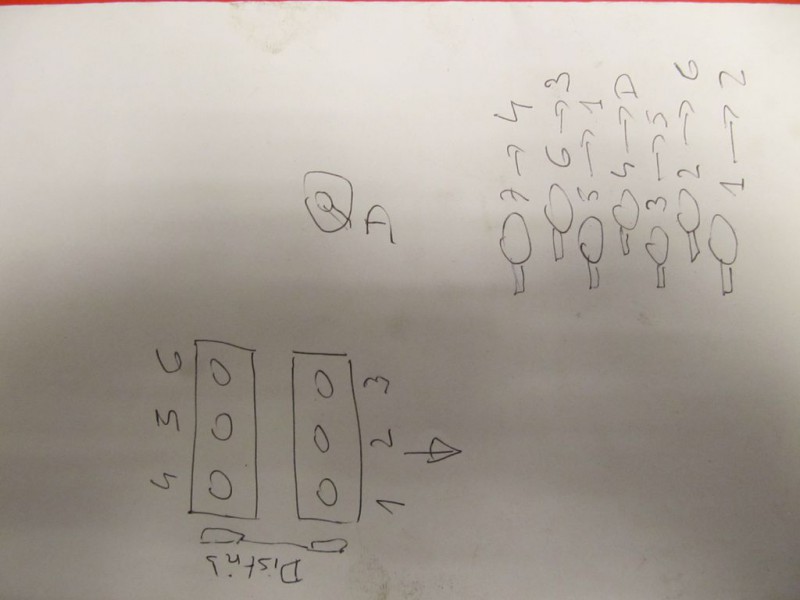 4 5 6
Distrib
D
1 2 3
7 → 4
6 → 3
5 → 1
4 → D
3 → 5
2 → 6
1 → 2